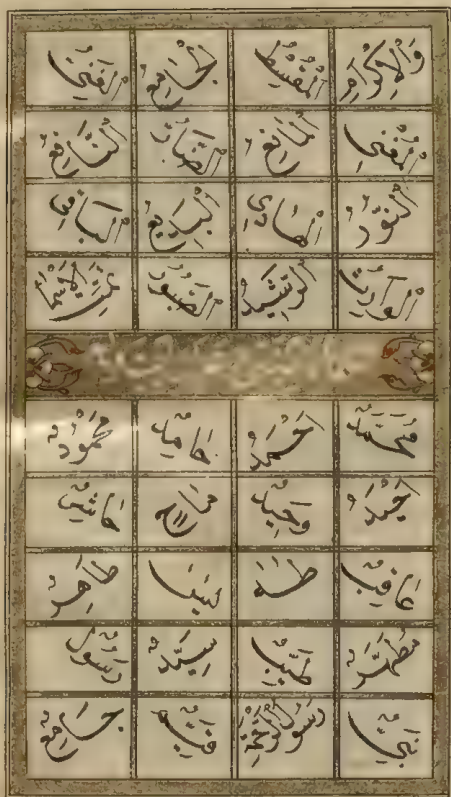 وَالْاِكْرَامِ الْمُقْسِطُ الْجَامِعُ الْغَنِىُّ
الْمُغْنِى الْمَانِعُ الضَّارُّ النَّافِعُ
النُّورُ الْهَادِى الْبَدِيعُ الْبَاقِى
الْوَارِثُ الرَّشِيدُ الصَّبُورُ
مُحَمَّدٌ اَحْمَدُ حَامِدٌ مَحْمُودٌ
اَحِيدُ وَحِيدٌ مَاحٍ حَاشِرٌ
عَاقِبٌ طٰهٰ يٰسٓ طَاهِرٌ
مُطَهَّرٌ طَيِّبٌ سَيِّدٌ رَسُولٌ
نَبِىٌّ رَسُولُ الرَّحْمَةِ قَيِّمٌ جَامِعٌ